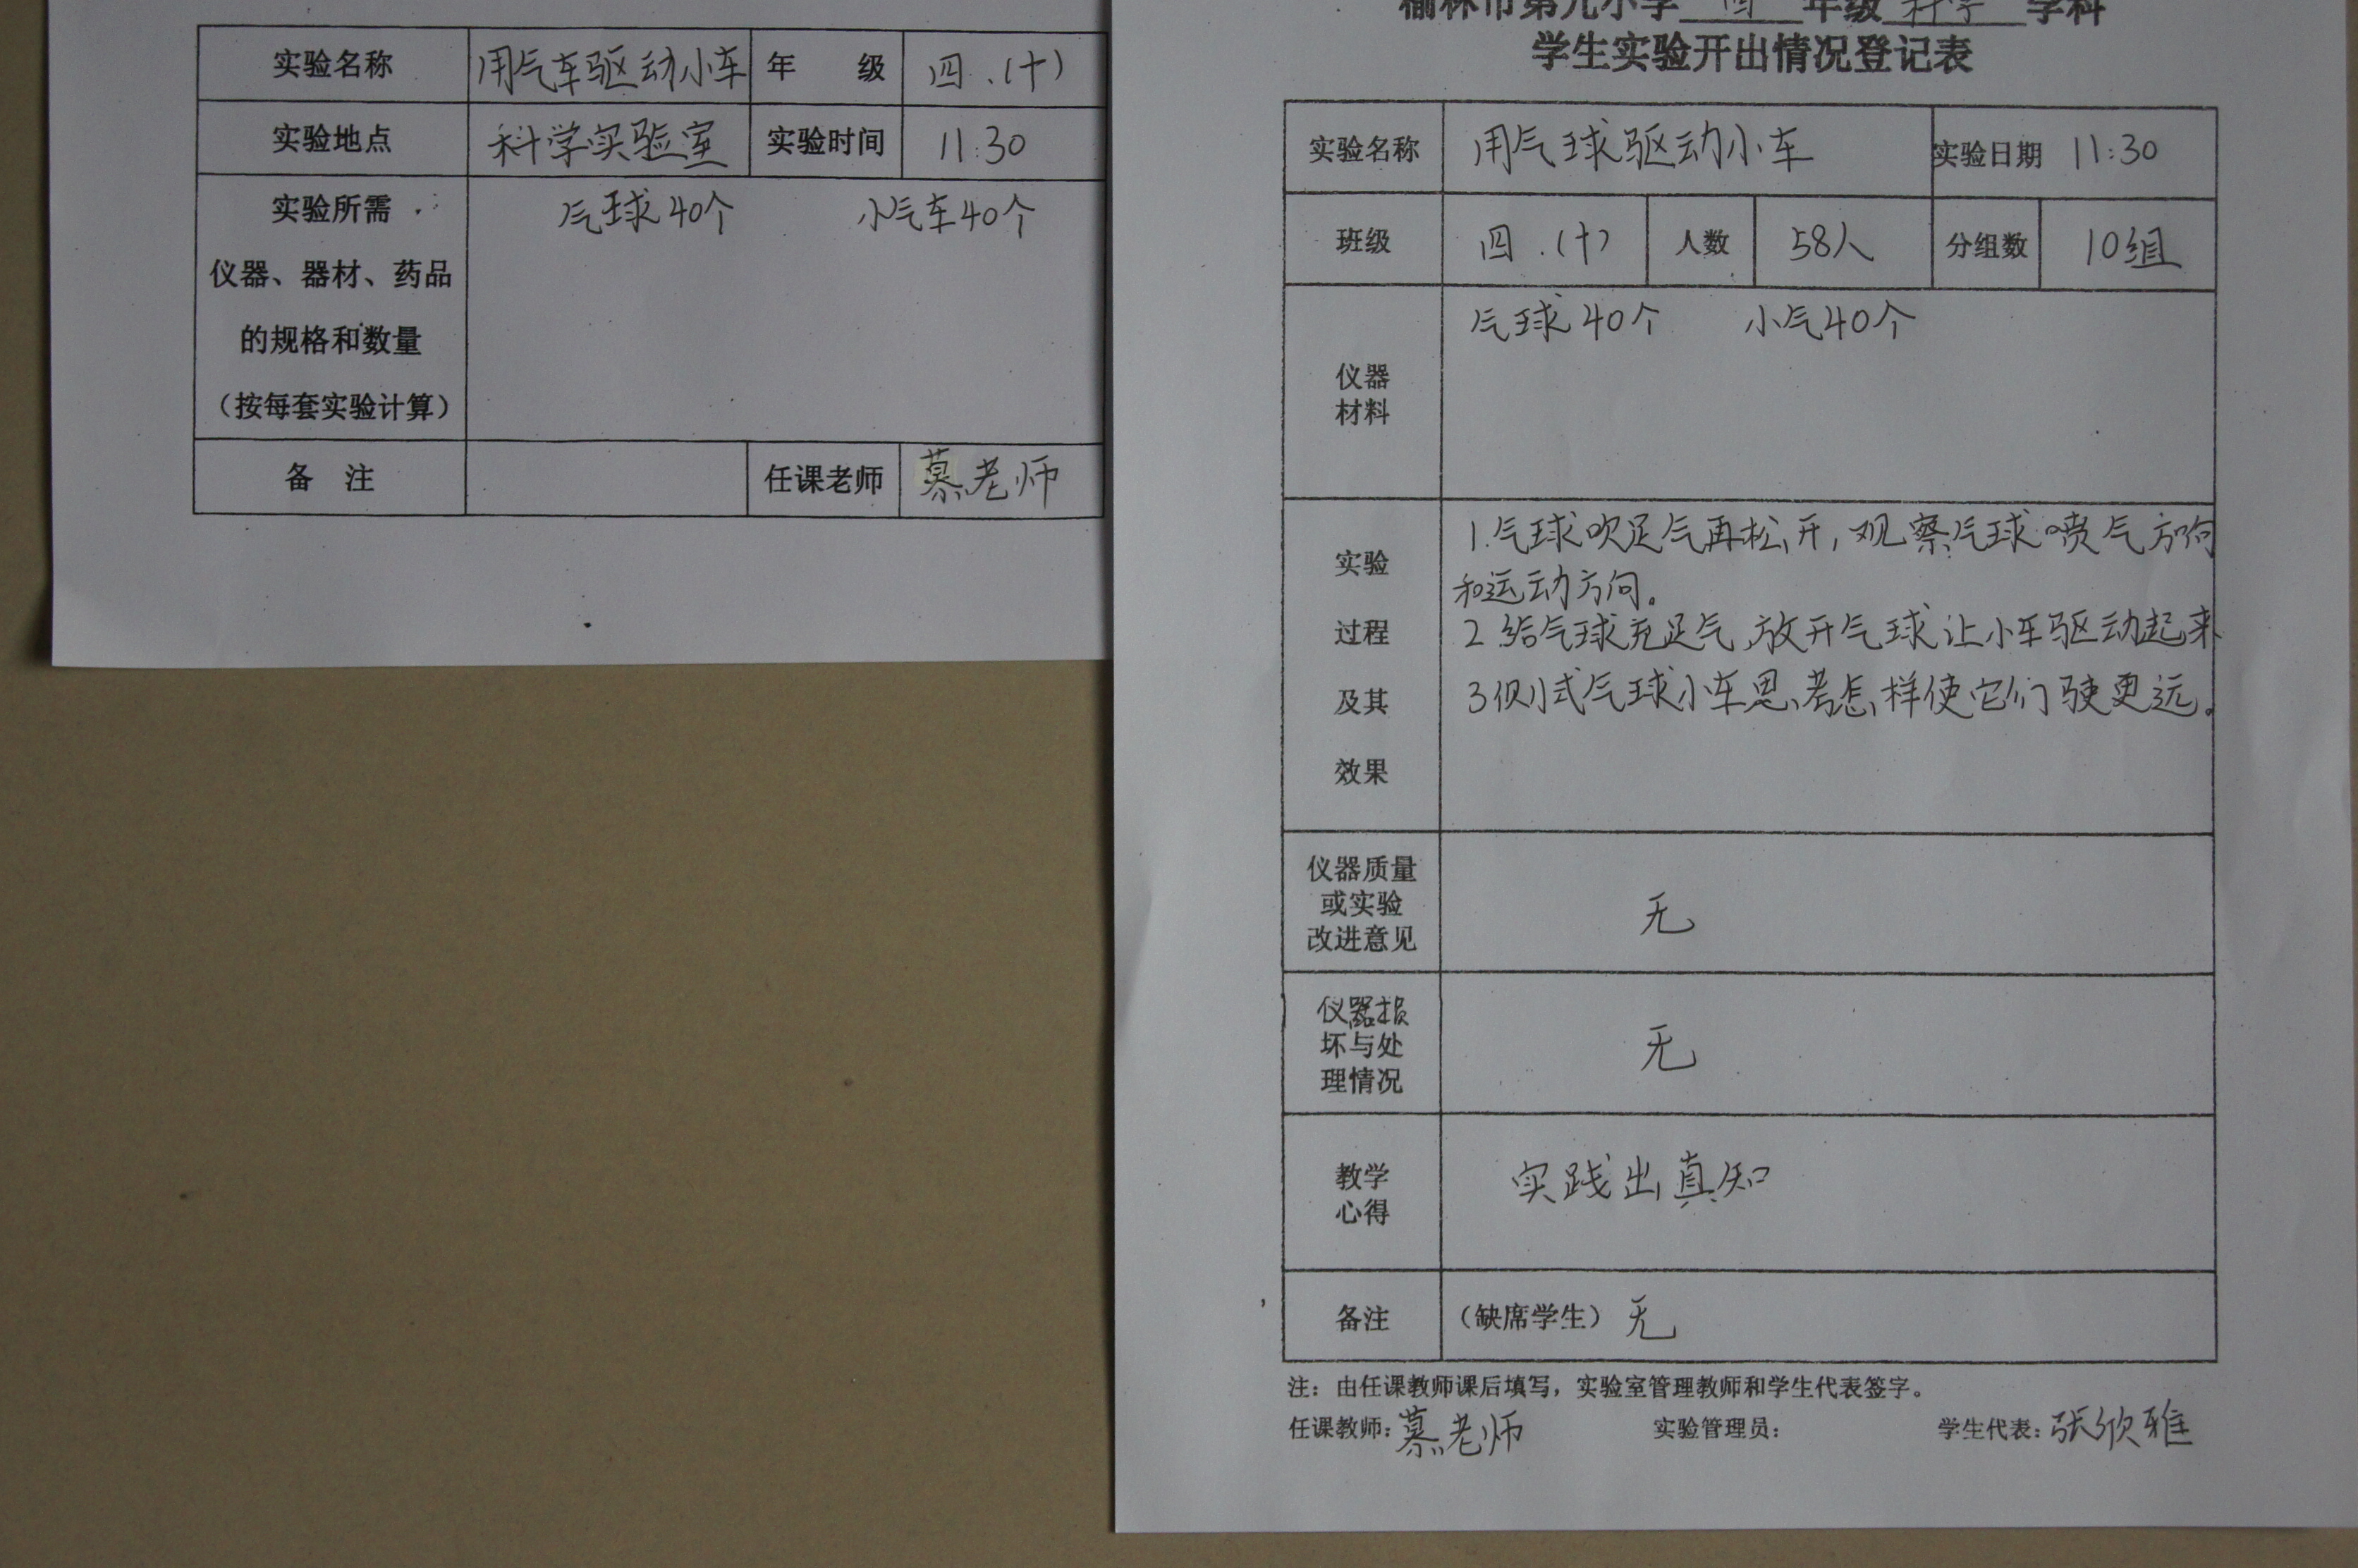 实验名称 用气车驱动小车 年 级 四.(十)
实验地点 科学实验室 实验时间 11:30
实验所需 气球40个 小气车40个
仪器、器材、药品
的规格和数量
(按每套实验计算)
备 注 任课老师 慕老师
榆林市第九小学 四 年级 科学 学科
学生实验开出情况登记表
实验名称 用气球驱动小车 实验日期 11:30
班级 四.(十) 人数 58人 分组数 10组
气球40个 小气40个
仪器
材料
1.气球吹足气再松开,观察气球喷气方向
和运动方向。
2.给气球充足气,放开气球让小车驱动起来
3测试气球小车思考怎样使它们驶更远。
实验
过程
及其
效果
仪器质量
或实验
改进意见
无
仪器损
坏与处
理情况
无
教学
心得
实践出真知
备注 (缺席学生) 无
注:由任课教师课后填写,实验室管理教师和学生代表签字。
任课教师:慕老师 实验管理员: 学生代表:张欣雅